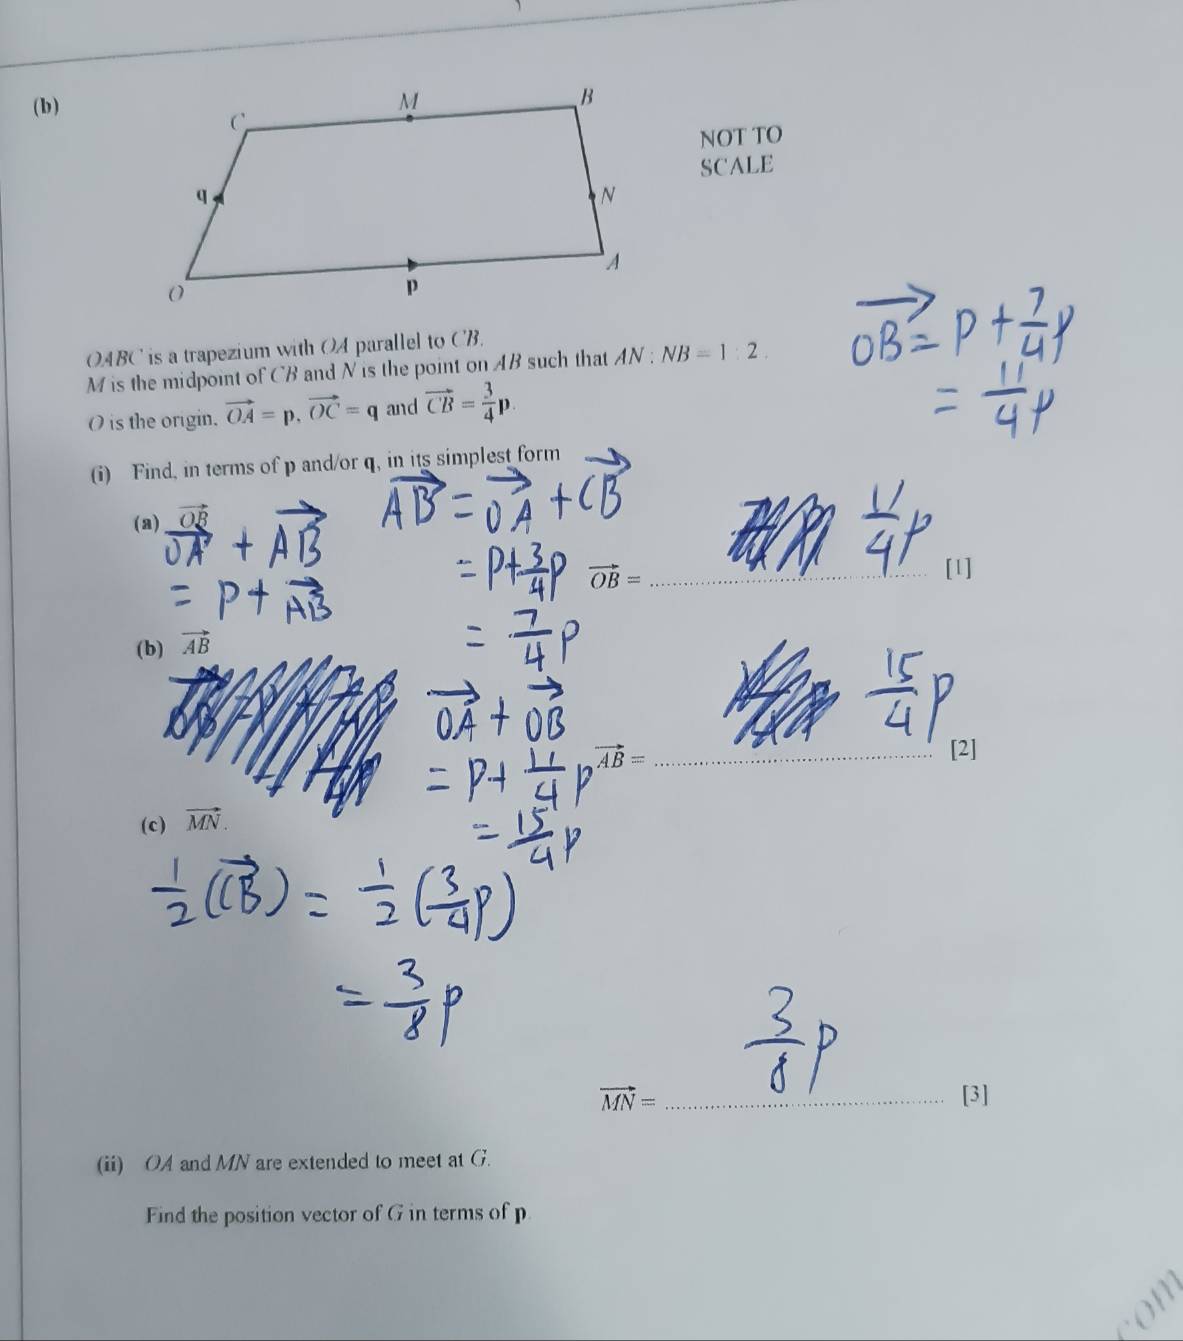 (b)
M
B
C
NOT TO
SCALE
q
N
A
O
p
OABC is a trapezium with OA parallel to CB.
M is the midpoint of CB and N is the point on AB such that AN : NB = 1 : 2 .
O is the origin, $\overrightarrow{OA}$ = p, $\overrightarrow{OC}$ = q and $\overrightarrow{CB}$ = $\frac{3}{4}$p.
$\overrightarrow{OB}$ = p + $\frac{7}{4}$p
= $\frac{11}{4}$p
(i) Find, in terms of p and/or q, in its simplest form
(a) $\overrightarrow{OB}$
$\overrightarrow{OA}$ + $\overrightarrow{AB}$
= p + $\overrightarrow{AB}$
$\overrightarrow{AB}$ = $\overrightarrow{OA}$ + $\overrightarrow{CB}$
= p + $\frac{3}{4}$p
= $\frac{7}{4}$p
$\overrightarrow{OB}$ = $\frac{11}{4}$p [1]
(b) $\overrightarrow{AB}$
$\overrightarrow{OA}$ + $\overrightarrow{OB}$
= p + $\frac{11}{4}$p
= $\frac{15}{4}$p
$\overrightarrow{AB}$ = $\frac{15}{4}$p [2]
(c) $\overrightarrow{MN}$.
$\frac{1}{2}$($\overrightarrow{CB}$) = $\frac{1}{2}$($\frac{3}{4}$p)
= $\frac{3}{8}$p
$\overrightarrow{MN}$ = $\frac{3}{8}$p [3]
(ii) OA and MN are extended to meet at G.
Find the position vector of G in terms of p
com